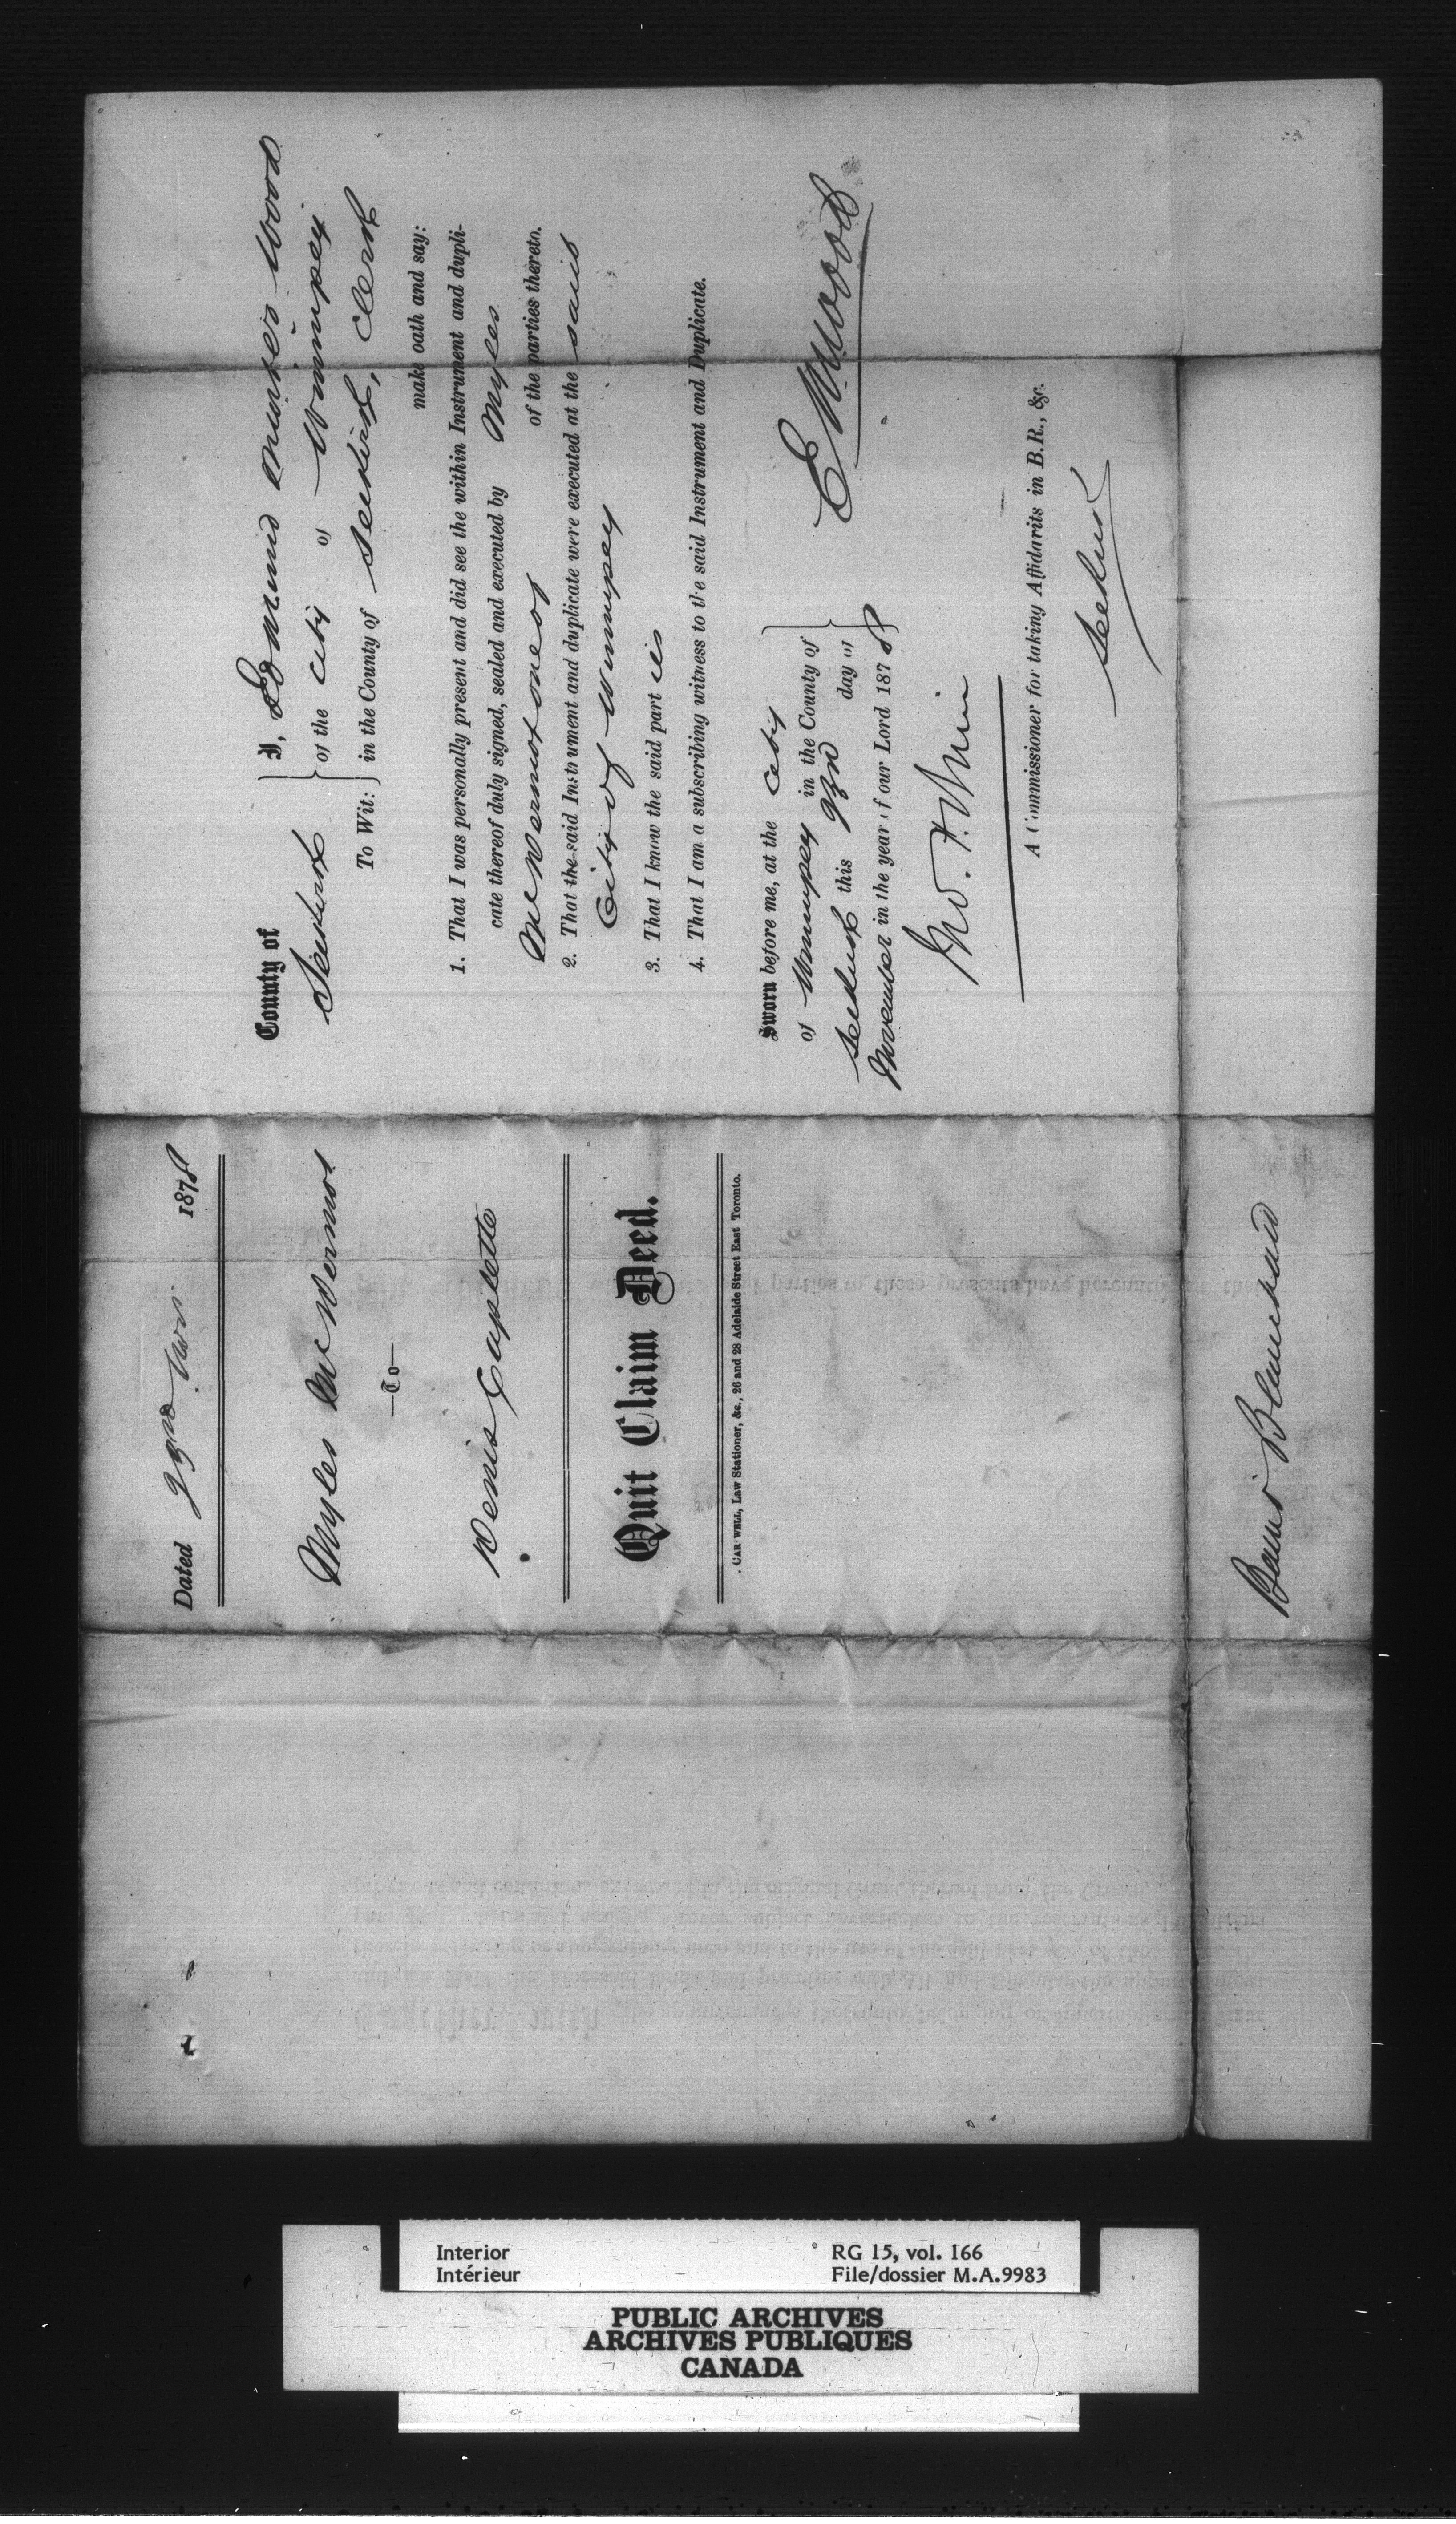 County of
Selkirk
To Wit:
I, Edmund Marsers Wood
of the City of Winnipeg
in the County of Selkirk, Clerk
make oath and say:
1. That I was personally present and did see the within Instrument and dupli-
cate thereof duly signed, sealed and executed by Myles
McDermot one of of the parties thereto.
2. That the said Instrument and duplicate were executed at the said
City of Winnipeg
3. That I know the said part ies
4. That I am a subscribing witness to the said Instrument and Duplicate.
Sworn before me, at the City
of Winnipeg in the County of
Selkirk this 23rd day of
November in the year of our Lord 1878
E M Wood
A Commissioner for taking Affidavits in B.R., &c.
Selkirk
Dated 23rd Nov. 1878
Myles McDermot
—To—
Denis Caplette
Quit Claim Deed.
CARSWELL, Law Stationer, &c., 26 and 28 Adelaide Street East Toronto.
Bain & Blanchard
Interior
Intérieur
RG 15, vol. 166
File/dossier M.A.9983
PUBLIC ARCHIVES
ARCHIVES PUBLIQUES
CANADA